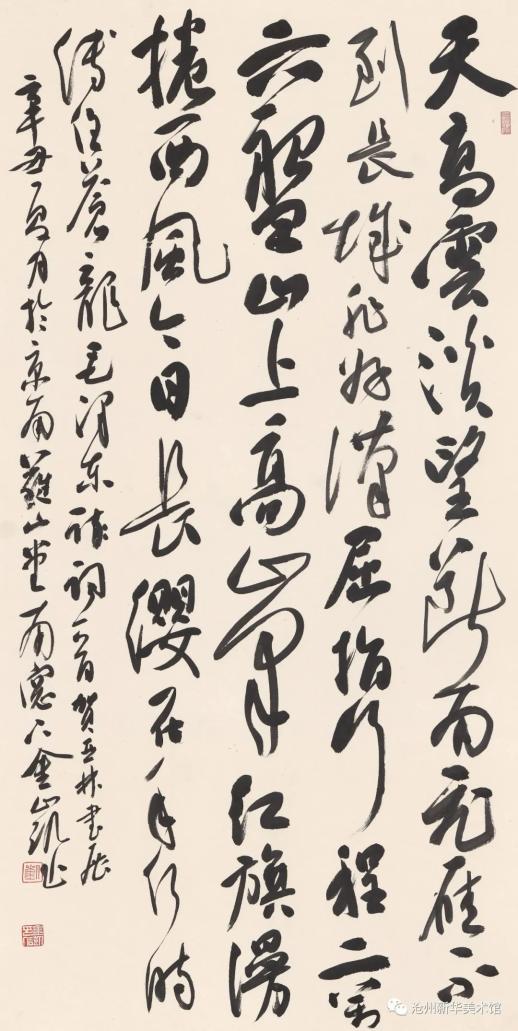 天高雲淡望斷南飛雁不
到長城非好漢屈指行程二萬
六盤山上高峯红旗漫
捲西風今日長纓在手何時
縛住蒼龍 毛澤東詩詞一首賀林書展
辛丑夏月於京南山堂南窗下
沧州新华美术馆